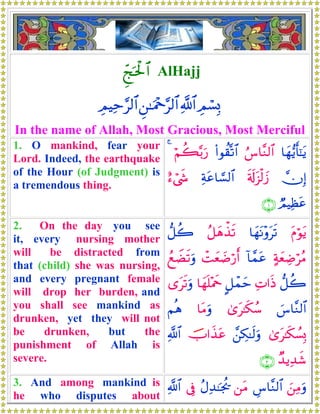 ٱلْحَجِّ AlHajj
بِسْمِ ٱللَّهِ ٱلرَّحْمَٰنِ ٱلرَّحِيمِ
In the name of Allah, Most Gracious, Most Merciful
1. O mankind, fear your
Lord. Indeed, the earthquake
of the Hour (of Judgment) is
a tremendous thing.
يَٰٓأَيُّهَا ٱلنَّاسُ ٱتَّقُوا۟ رَبَّكُمْ ۚ
إِنَّ زَلْزَلَةَ ٱلسَّاعَةِ شَىْءٌ
عَظِيمٌ ﴿١﴾
2. On the day you see
it, every nursing mother
will be distracted from
that (child) she was nursing,
and every pregnant female
will drop her burden, and
you shall see mankind as
drunken, yet they will not
be drunken, but the
punishment of Allah is
severe.
يَوْمَ تَرَوْنَهَا تَذْهَلُ كُلُّ
مُرْضِعَةٍ عَمَّآ أَرْضَعَتْ وَتَضَعُ
كُلُّ ذَاتِ حَمْلٍ حَمْلَهَا وَتَرَى
ٱلنَّاسَ سُكَٰرَىٰ وَمَا هُم
بِسُكَٰرَىٰ وَلَٰكِنَّ عَذَابَ ٱللَّهِ
شَدِيدٌ ﴿٢﴾
3. And among mankind is
he who disputes about
وَمِنَ ٱلنَّاسِ مَن يُجَٰدِلُ فِى ٱللَّهِ